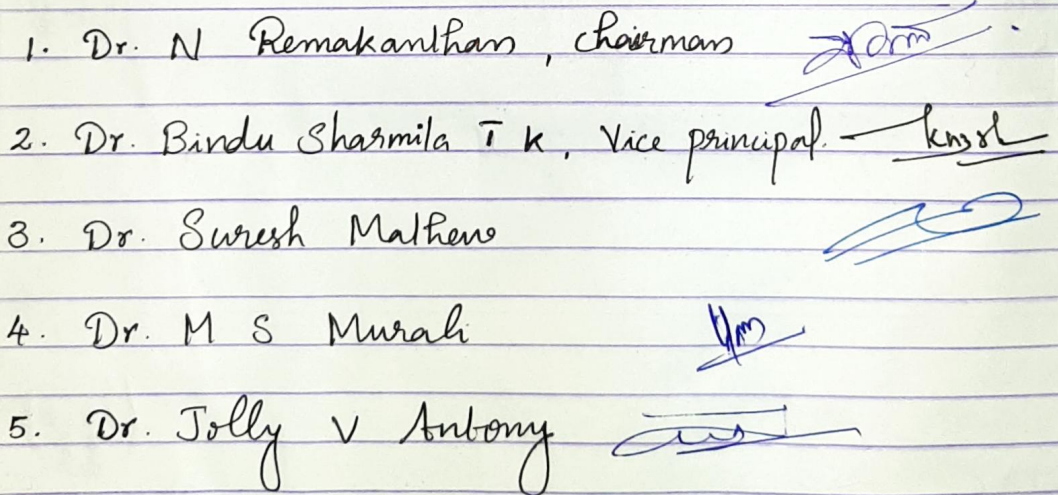 1. Dr. N Remakanthan, Chairman
2. Dr. Bindu Sharmila T K, Vice principal.
3. Dr. Suresh Mathew
4. Dr. M S Murali
5. Dr. Jolly V Antony